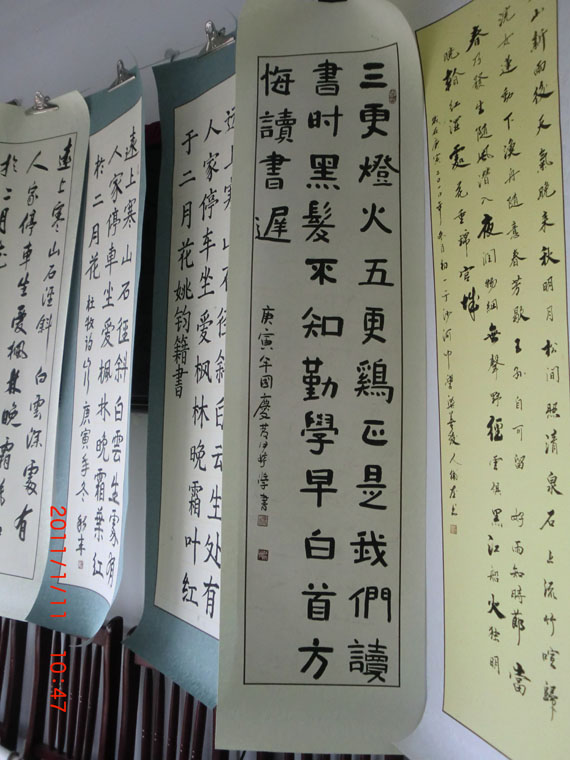 山新雨後天氣晚來秋明月松間照清泉石上流竹喧歸
浣女蓮動下漁舟隨意春芳歇王孫自可留 好雨知時節當
春乃發生隨風潛入夜潤物細無聲野徑雲俱黑江船火獨明
紅濕處花重錦官城
三更燈火五更鷄正是我們讀
書时黑髮不知勤學早白首方
悔讀書遲
庚寅年国慶 書
远上寒山石径斜白云生处有
人家停车坐爱枫林晚霜叶红
于二月花姚钧籍書
遠上寒山石徑斜白雲生處有
人家停車坐愛楓林晚霜葉红
於二月花 杜牧詩 庚寅年冬
遠上寒山石徑斜 白雲深處有
人家停車坐愛楓林晚霜葉
於二月花
2011/1/11 10:47